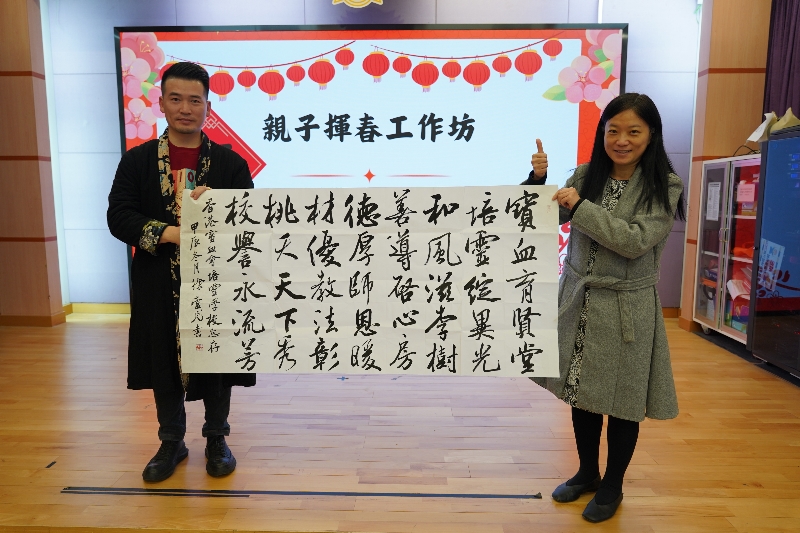 親子揮春工作坊
寶血育賢堂
培靈綻異光
和風滋李樹
善導启心房
德厚師恩暖
材優教法彰
桃夭天下秀
校譽永流芳
香港寶血會培靈學校惠存
甲辰冬月徐雲書